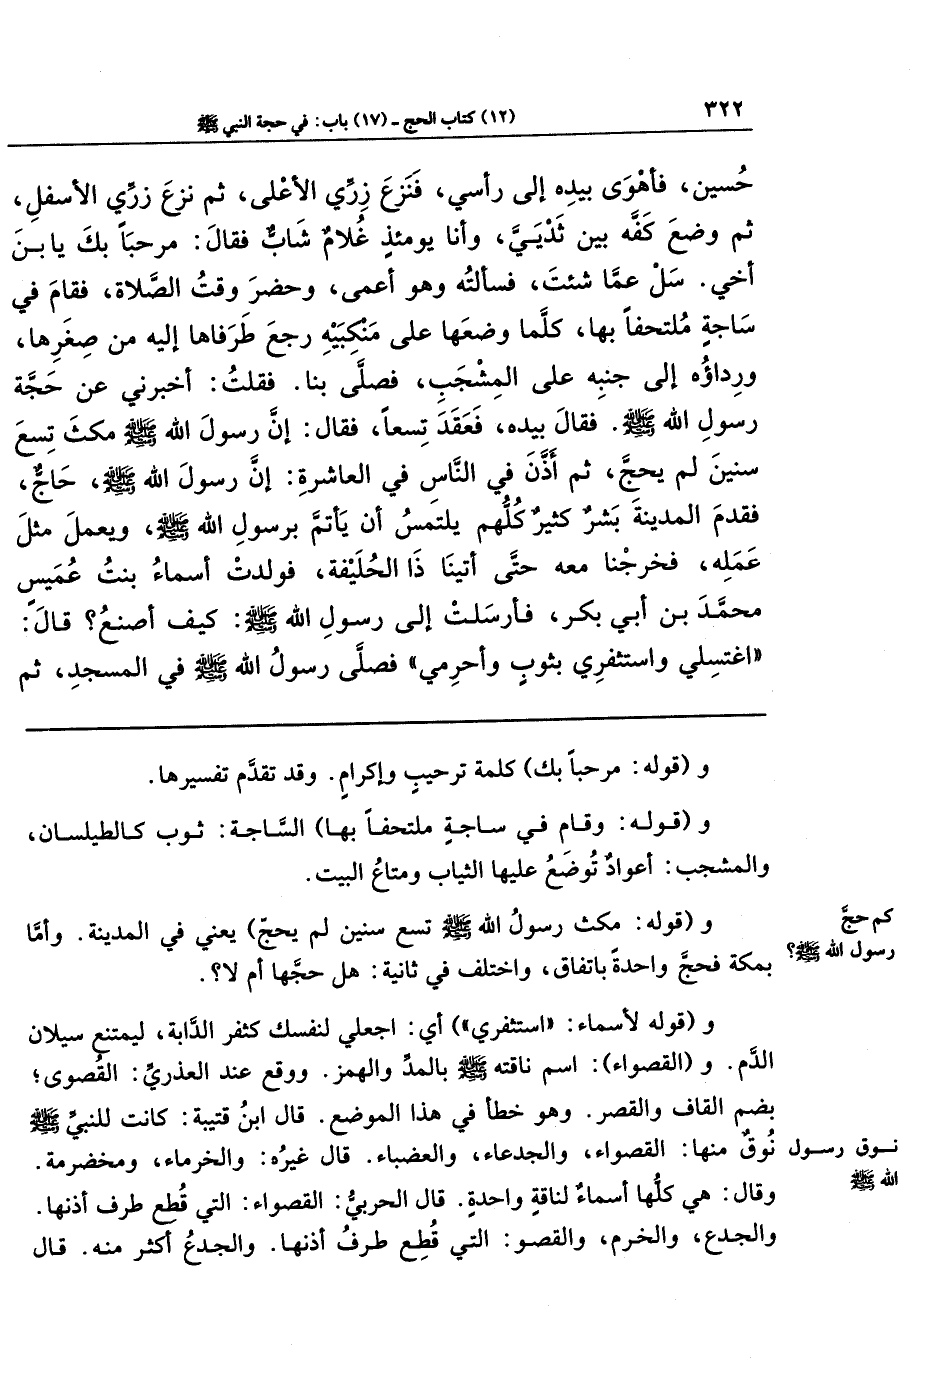 ٣٢٢
(١٢) كتاب الحج - (١٧) باب: في حجة النبي ﷺ
حُسين، فأهْوَى بيدِه إلى رأسي، فَنَزعَ زِرِّي الأعْلى، ثم نزعَ زرِّي الأسفلِ،
ثم وضعَ كَفَّه بين ثَدْيَيَّ، وأنا يومئذٍ غُلامٌ شَابٌّ فقالَ: مرحبَاً بكَ يا بنَ
أخي. سَلْ عمَّا شئتَ، فسألتُه وهو أعمى، وحضرَ وقتُ الصَّلاة، فقامَ في
سَاجةٍ مُلتحفاً بها، كلَّما وضعَها على مَنْكِبَيْهِ رجعَ طَرَفاها إليه من صِغَرِها،
ورِداؤُه إلى جنبِه على المِشْجَبِ، فصلَّى بنا. فقلتُ: أخبرني عن حَجَّة
رسولِ الله ﷺ. فقالَ بيده، فَعَقَدَ تِسعاً، فقال: إنَّ رسولَ الله ﷺ مكثَ تِسعَ
سنينَ لم يحجَّ، ثم أَذَّنَ في النَّاسِ في العاشرةِ: إنَّ رسولَ الله ﷺ، حَاجٌّ،
فقدمَ المدينةَ بَشرٌ كثيرٌ كُلُّهم يلتمسُ أن يَأتمَّ برسولِ الله ﷺ، ويعملَ مثلَ
عَمَلِه، فخرجْنا معه حتَّى أتينَا ذَا الحُلَيْفة، فولدتْ أسماءُ بنتُ عُمَيسٍ
محمَّدَ بن أبي بكر، فأرسَلتْ إلى رسولِ الله ﷺ: كيف أصنعُ؟ قالَ:
«اغتسِلي واستثفرِي بثوبٍ وأحرِمي» فصلَّى رسولُ الله ﷺ في المسجدِ، ثم
و (قوله: مرحباً بك) كلمة ترحيبٍ وإكرامٍ. وقد تقدَّم تفسيرها.
و (قوله: وقام في ساجةٍ ملتحفاً بها) السَّاجة: ثوب كالطيلسان،
والمشجب: أعوادٌ تُوضَعُ عليها الثياب ومتاعُ البيت.
كم حجَّ
رسول الله ﷺ؟
و (قوله: مكث رسولُ الله ﷺ تسع سنين لم يحجّ) يعني في المدينة. وأمَّا
بمكة فحجَّ واحدةً باتفاق، واختلف في ثانية: هل حجَّها أم لا؟.
و (قوله لأسماء: «استثفري») أي: اجعلي لنفسك كثفر الدَّابة، ليمتنع سيلان
الدَّم. و (القصواء): اسم ناقته ﷺ بالمدِّ والهمز. ووقع عند العذريِّ: القُصوى؛
بضم القاف والقصر. وهو خطأ في هذا الموضع. قال ابنُ قتيبة: كانت للنبيِّ ﷺ
نوق رسول
الله ﷺ
نُوقٌ منها: القصواء، والجدعاء، والعضباء. قال غيرُه: والخرماء، ومخضرمة.
وقال: هي كلُّها أسماءٌ لناقةٍ واحدةٍ. قال الحربيُّ: القصواء: التي قُطِع طرف أذنها.
والجدع، والخرم، والقصو: التي قُطِع طرفُ أذنها. والجدعُ أكثر منه. قال